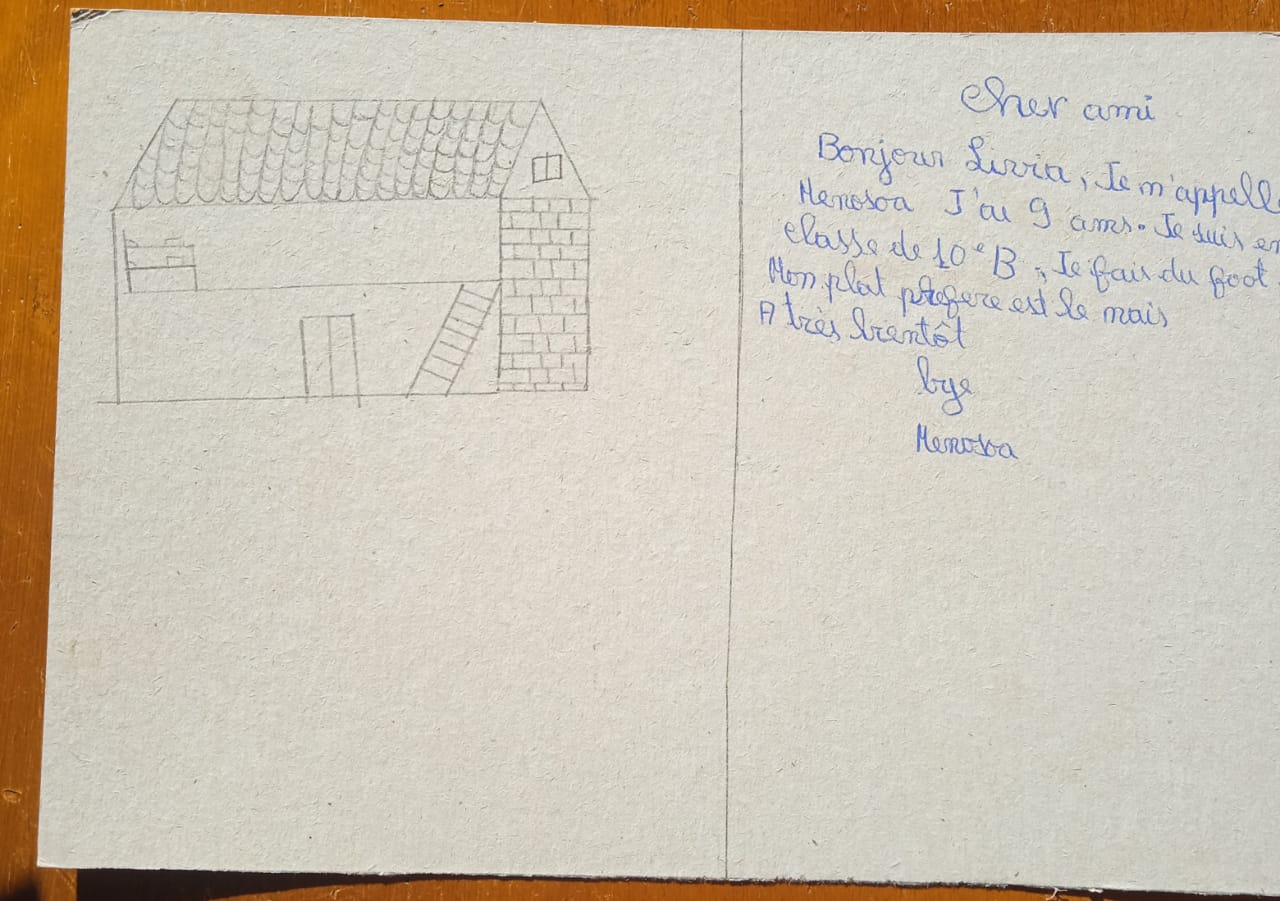 Cher ami
Bonjour Livia, Je m'appelle
Menosoa J'ai 9 ams. Je suis en
classe de 10e B, Je fais du foot
Mon plat prefere est le mais
A très bientôt
bye
Menosoa